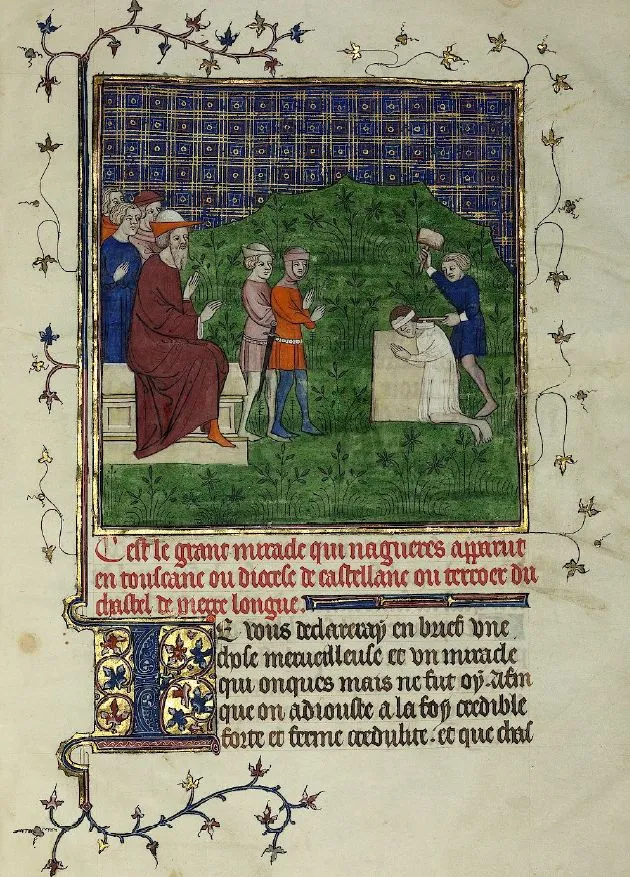 C est le grant miracle qui nagueres apparut
en touscane ou diocese de castellane ou terroer du
chastel de pierre longue.
IE vous declareray en brief vne
chose merueilleuse et vn miracle
qui onques mais ne fut oy. Afin
que on adiouste a la foy credible
forte et ferme credulite. et que chas